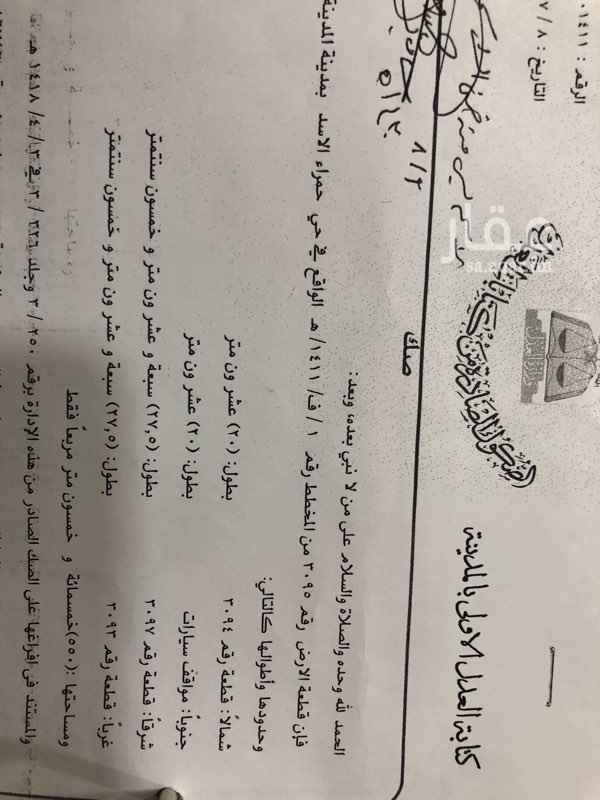 كتابة العدل الاولى بالمدينة
الرقم : ١٤١١٠
التاريخ : ٧/٨
عقار
sa.aqar.fm
٨/٩
صك
الحمد لله وحده والصلاة والسلام على من لا نبي بعده، وبعد:
فإن قطعة الارض رقم ٣٠٩٥ من المخطط رقم ١ / ف/ ١٤١١/ هـ الواقع في حي حمراء الاسد بمدينة المدينة
وحدودها وأطوالها كالتالي:
شمالاً: قطعة رقم ٣٠٩٤ بطول: (٢٠) عشرون متر
جنوباً: مواقف سيارات بطول: (٢٠) عشرون متر
شرقاً: قطعة رقم ٣٠٩٧ بطول: (٢٧,٥) سبعة و عشرون متر و خمسون سنتمتر
غرباً: قطعة رقم ٣٠٩٣ بطول: (٢٧,٥) سبعة و عشرون متر و خمسون سنتمتر
ومساحتها :(٥٥٠)خمسمائة و خمسون متر مربعاً فقط
والمستند في افراغها على الصك الصادر من هذه الإدارة برقم ٣/٢٥٠ وجلد ٣/٣٢٦ في ٣/ ٤/ ١٤١٨ هـ